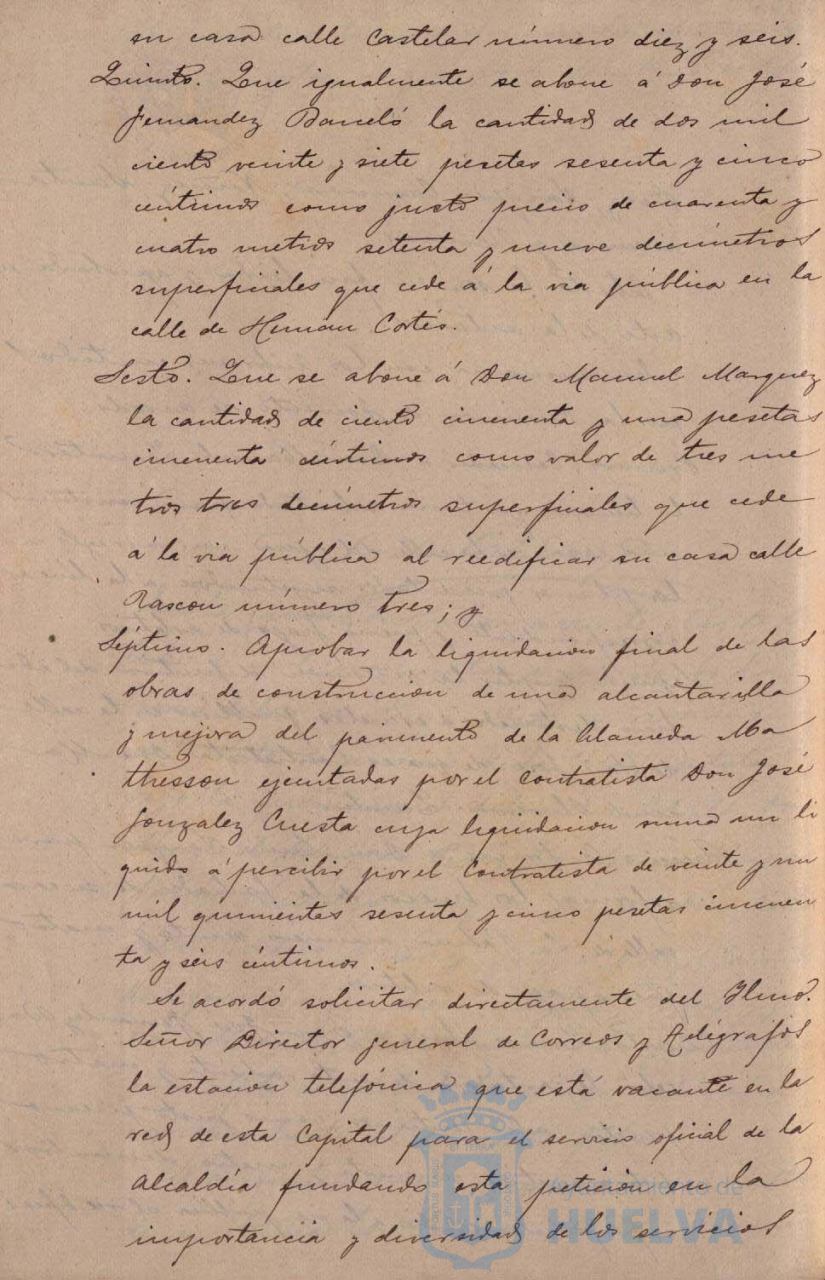 su casa calle Castelar número diez y seis.
Quinto. Que igualmente se abone á Don José
Fernandez Barceló la cantidad de dos mil
ciento veinte y siete pesetas sesenta y cinco
céntimos como justo precio de cuarenta y
cuatro metros setenta y nueve decímetros
superficiales que cede á la via pública en la
calle de Hernán Cortés.
Sesto. Que se abone á Don Manuel Marquez
la cantidad de ciento cincuenta y una pesetas
cincuenta céntimos como valor de tres me
tros tres decímetros superficiales que cede
á la via pública al reedificar su casa calle
Rascon número tres; y
Séptimo. Aprobar la liquidacion final de las
obras de construccion de una alcantarilla
y mejora del pavimento de la Alameda Ma
thesson ejecutadas por el contratista Don José
Gonzalez Cuesta cuya liquidacion suma un lí
quido á percibir por el Contratista de veinte y un
mil quinientas sesenta y cinco pesetas cincuen
ta y seis céntimos.
Se acordó solicitar directamente del Ilmo.
Señor Director general de Correos y Telégrafos
la estacion telefónica que está vacante en la
red de esta Capital para el servicio oficial de la
Alcaldía fundando esta peticion en la
importancia y diversidad de los servicios
Ayuntamiento de
HUELVA